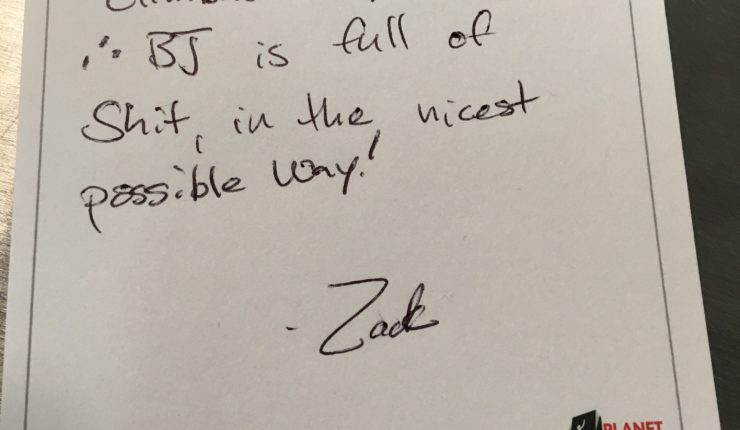 ∴ BJ is full of
Shit, in the nicest
possible way!
- Zack
PLANET